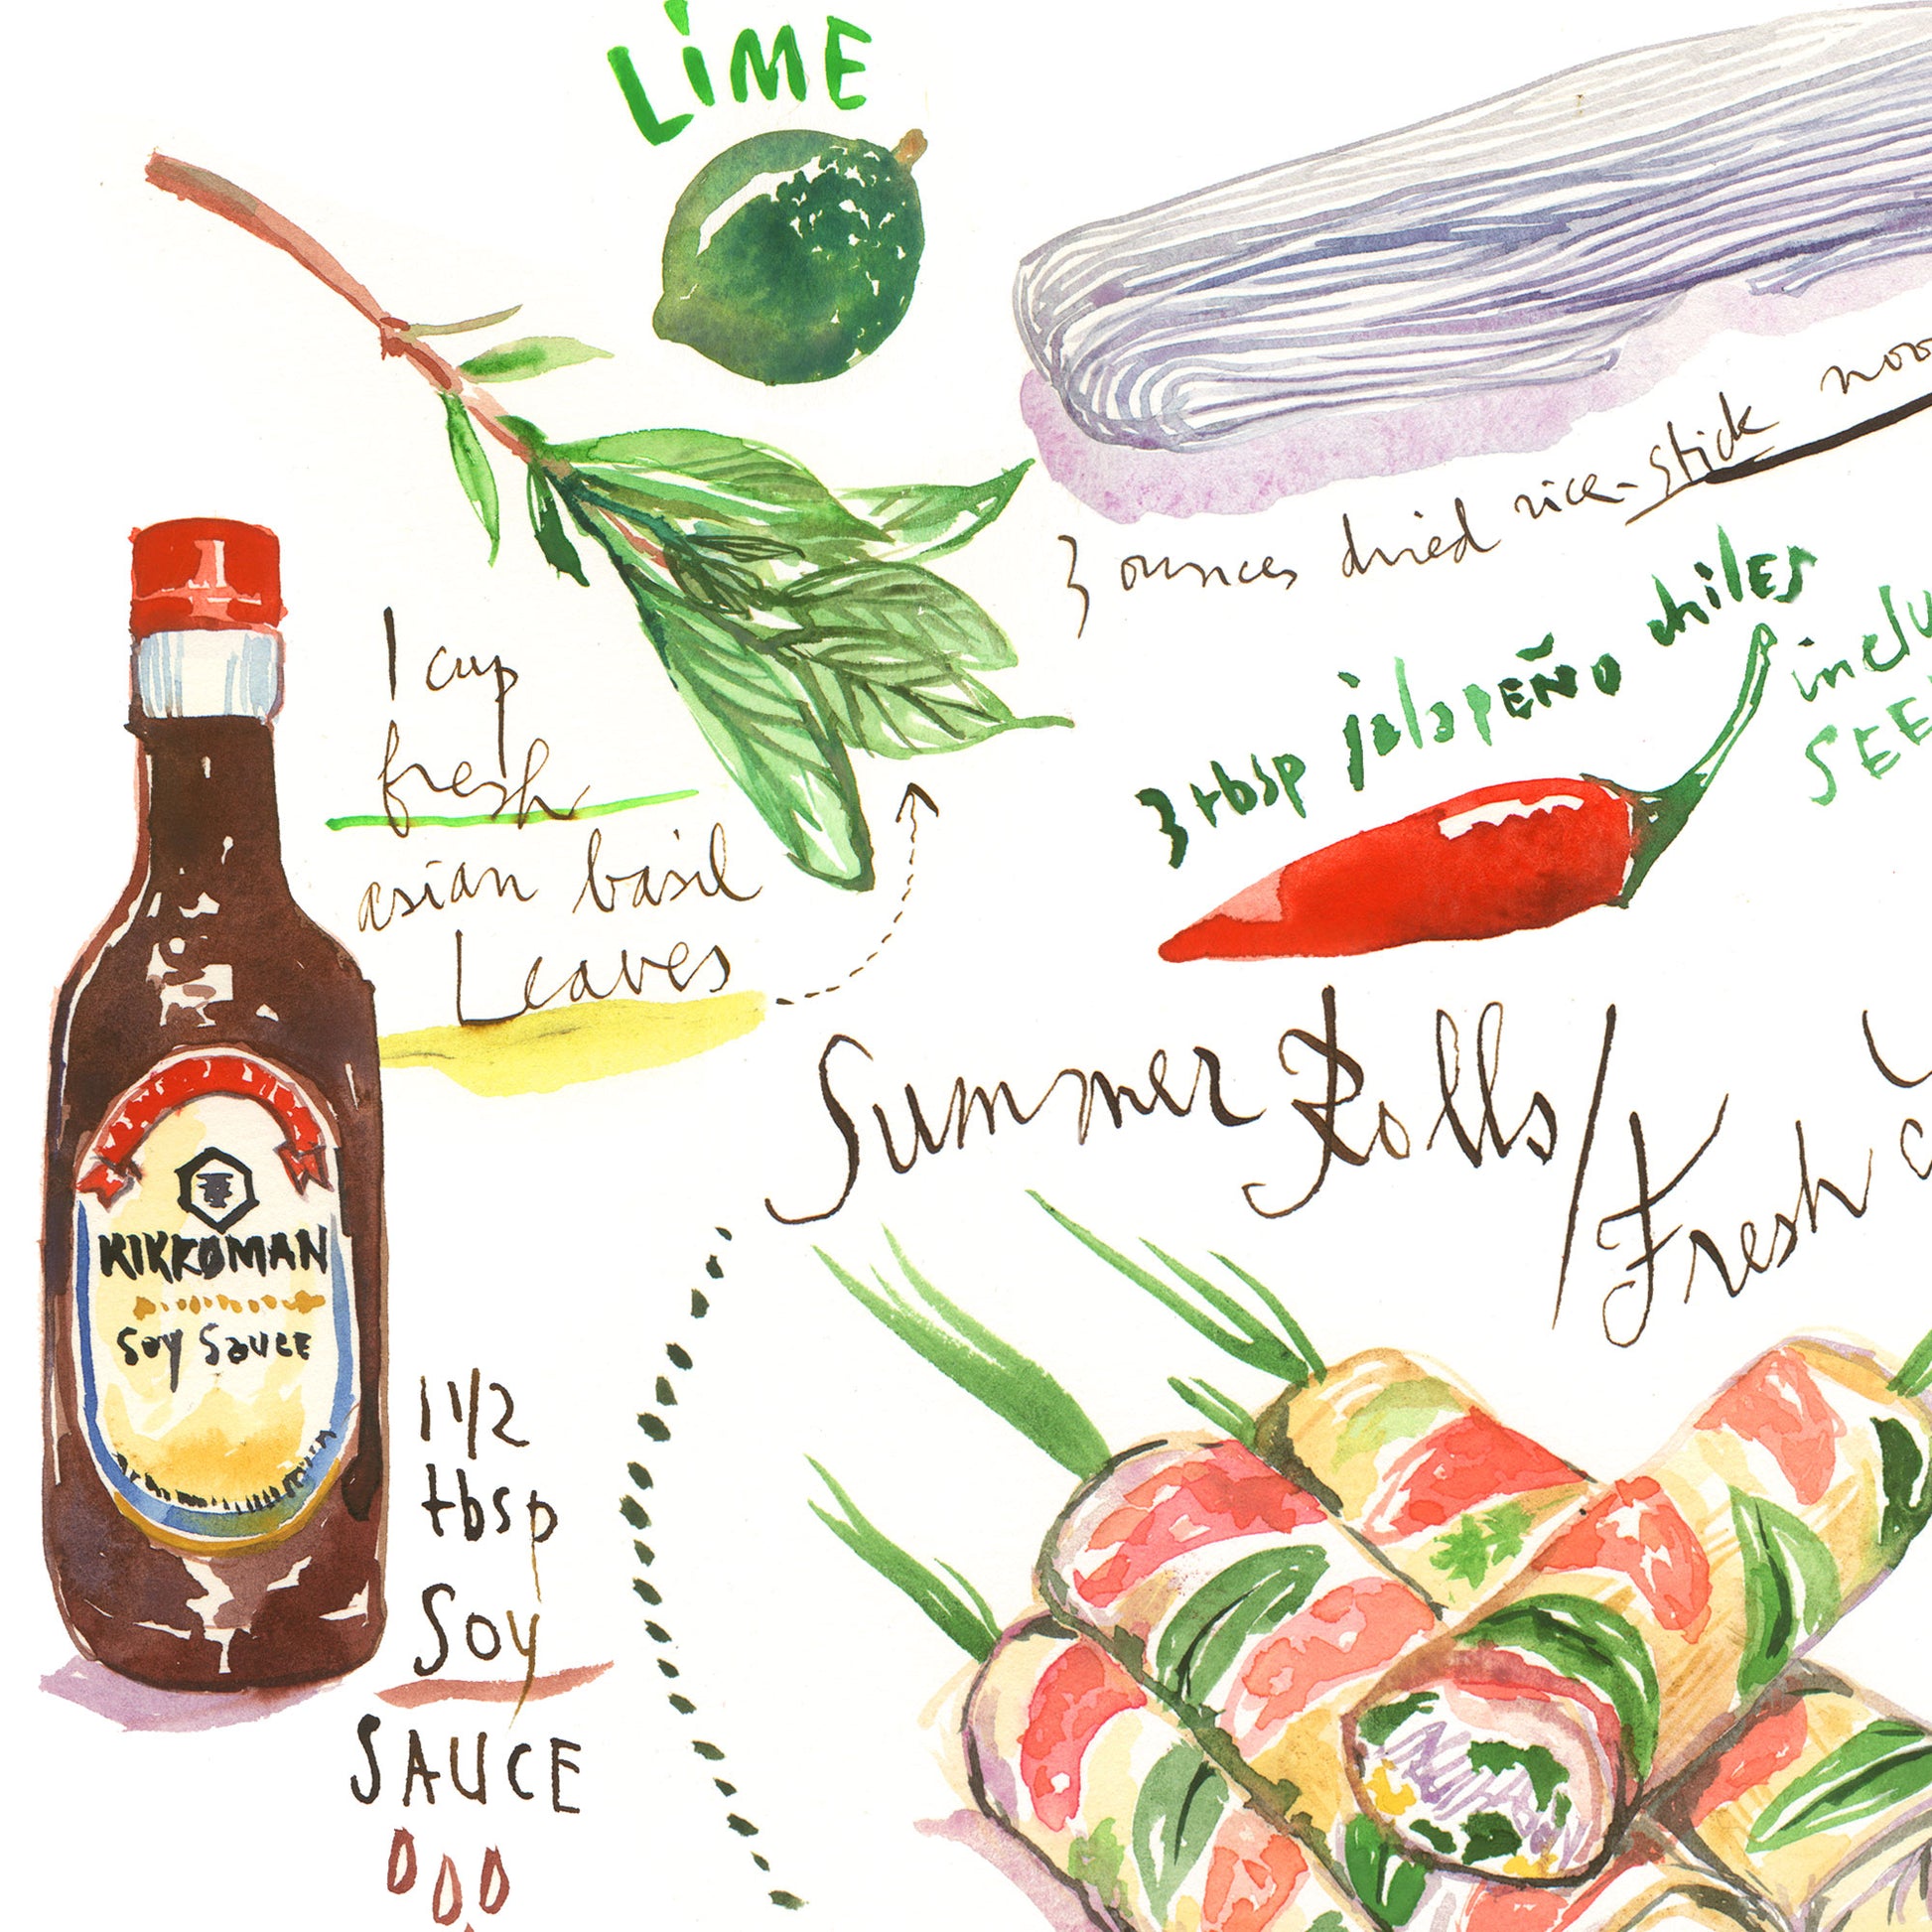 LiME
3 ounces dried rice-stick noo
3 tbsp jalapEÑO chilES
inclu
SEE
1 cup
fresh
asian basil
Leaves
Summer Rolls/
Fresh
KIKKOMAN
Soy SauCE
1 1/2
tbsp
Soy
SAUCE